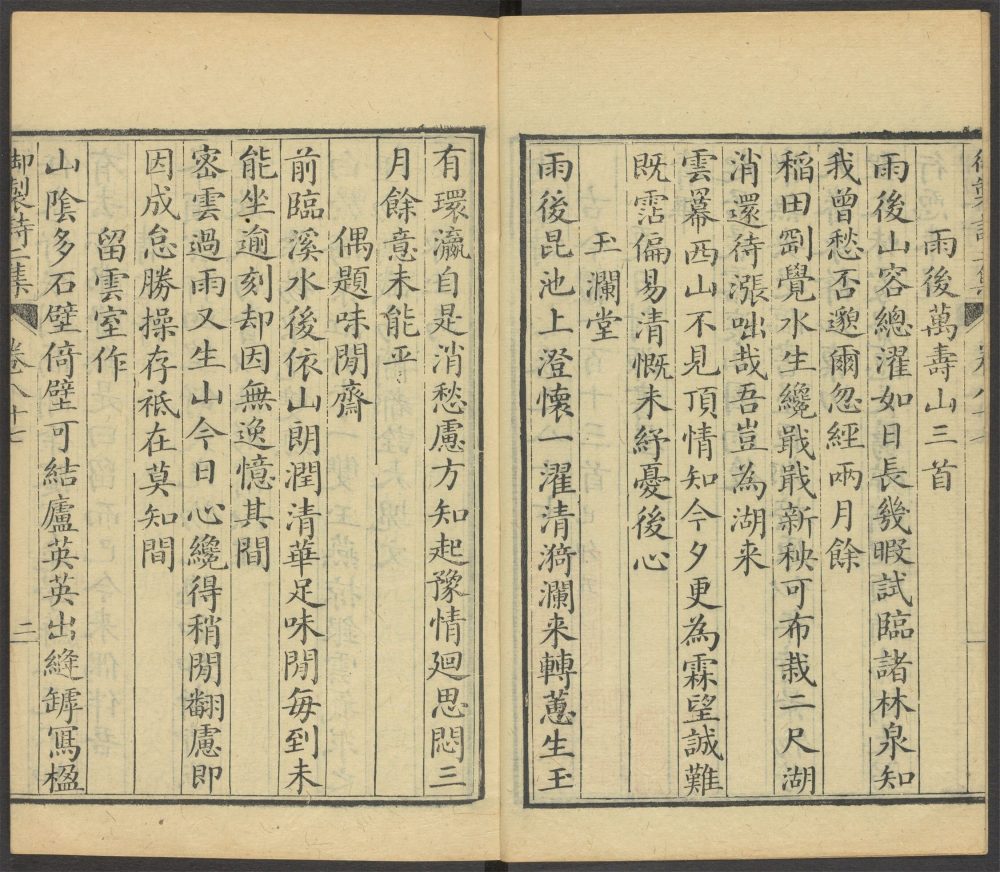 雨後萬壽山三首
雨後山容總濯如日長幾暇試臨諸林泉知
我曾愁否邈爾忽經兩月餘
稻田劄覺水生纔戢戢新秧可布栽二尺湖
消還待漲咄哉吾豈為湖来
雲羃西山不見頂情知今夕更為霖望誠難
既霑偏易清慨未紓憂後心
玉瀾堂
雨後昆池上澄懷一濯清漪瀾来轉蕙生玉
有環瀛自是消愁慮方知起豫情廻思悶三
月餘意未能平
偶題味閒齋
前臨溪水後依山朗潤清華足味閒每到未
能坐逾刻却因無逸憶其間
密雲過雨又生山今日心纔得稍閒翻慮即
因成怠勝操存祗在莫知間
留雲室作
山陰多石壁倚壁可結廬英英出縫罅冩楹
御製詩二集 卷八十七 二